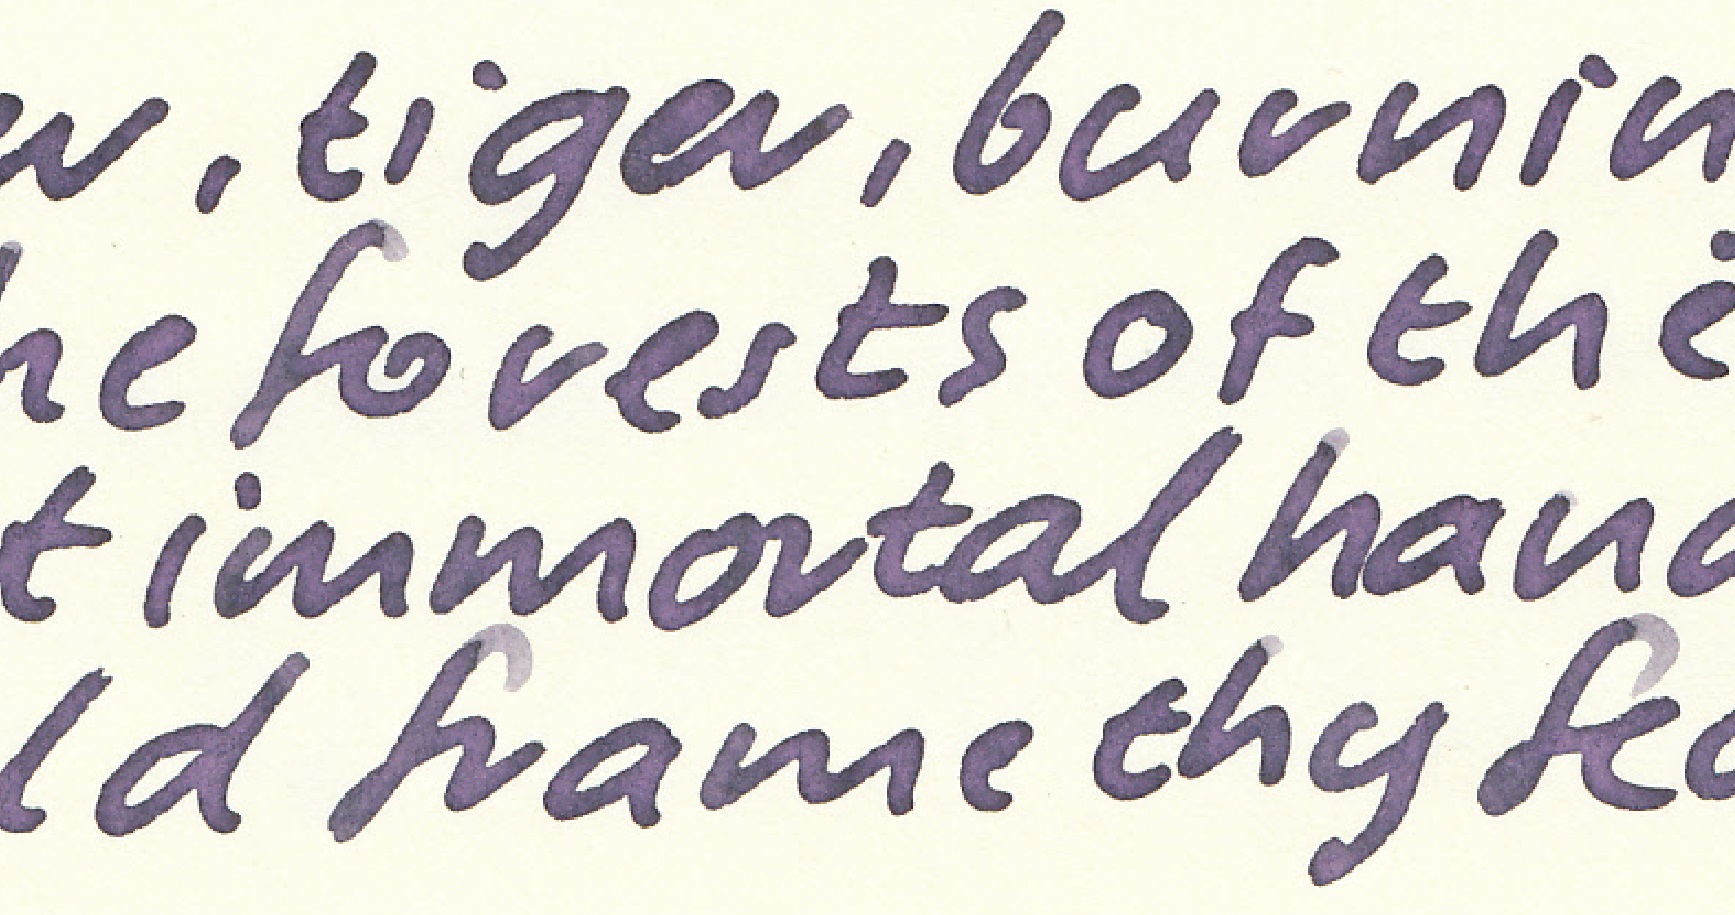 er, tiger, burnin
he forests of the
t immortal hand
ld frame thy fea